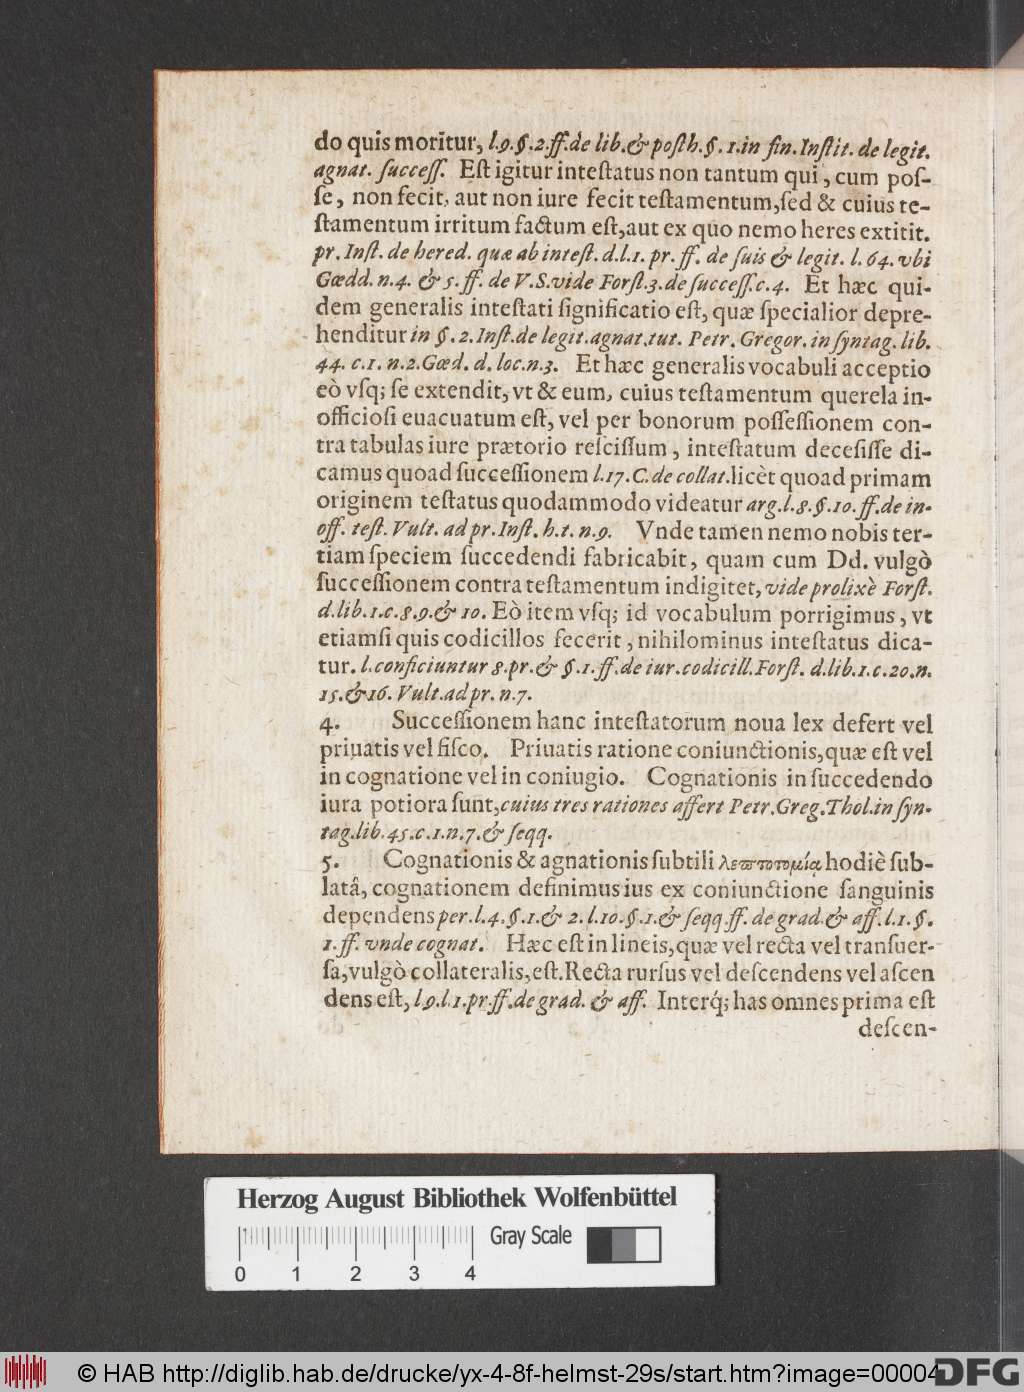 do quis moritur, l.9.§.2.ff.de lib.& posth.§.1.in fin.Instit. de legit.
agnat. ſucceſſ. Eſt igitur inteſtatus non tantum qui, cum poſ-
ſe, non fecit, aut non iure fecit teſtamentum,ſed & cuius te-
ſtamentum irritum factum eſt,aut ex quo nemo heres extitit.
pr. Inſt. de hered. quæ ab inteſt. d.l.1. pr. ff. de ſuis & legit. l. 64. vbi
Gœdd. n.4. & 5. ff. de V.S.vide Forſt.3. de ſucceſſ.c.4. Et hæc qui-
dem generalis inteſtati ſignificatio eſt, quæ ſpecialior depre-
henditur in §. 2.Inſt.de legit.agnat.tut. Petr. Gregor. in ſyntag. lib.
44. c.1. n.2.Gœd. d. loc.n.3. Et hæc generalis vocabuli acceptio
eò vſq; ſe extendit, vt & eum, cuius teſtamentum querela in-
officioſi euacuatum eſt, vel per bonorum poſſeſſionem con-
tra tabulas iure prætorio reſciſſum, inteſtatum deceſiſſe di-
camus quoad ſucceſſionem l.17.C.de collat.licèt quoad primam
originem teſtatus quodammodo videatur arg.l.8.§.10.ff.de in-
off. teſt. Vult. ad pr. Inſt. h.t. n.9. Vnde tamen nemo nobis ter-
tiam ſpeciem ſuccedendi fabricabit, quam cum Dd. vulgò
ſucceſſionem contra teſtamentum indigitet, vide prolixè Forſt.
d.lib.1.c.8.9.& 10. Eò item vſq; id vocabulum porrigimus, vt
etiamſi quis codicillos fecerit, nihilominus inteſtatus dica-
tur. l.conficiuntur 8.pr.& §.1.ff.de iur.codicill.Forſt. d.lib.1.c.20.n.
15.&16. Vult.ad pr. n.7.
4. Succeſſionem hanc inteſtatorum noua lex defert vel
priuatis vel fiſco. Priuatis ratione coniunctionis,quæ eſt vel
in cognatione vel in coniugio. Cognationis in ſuccedendo
iura potiora ſunt,cuius tres rationes affert Petr.Greg.Thol.in ſyn-
tag.lib.45.c.1.n.7.& ſeqq.
5. Cognationis & agnationis ſubtili λεπτοτομίᾳ hodiè ſub-
latâ, cognationem definimus ius ex coniunctione ſanguinis
dependens per.l.4.§.1.& 2.l.10.§.1.& ſeqq.ff. de grad.& aff.l.1.§.
1.ff. vnde cognat. Hæc eſt in lineis,quæ vel recta vel tranſuer-
ſa,vulgò collateralis,eſt.Recta rurſus vel deſcendens vel aſcen
dens eſt, l.9.l.1.pr.ff.de grad. & aff. Interq́; has omnes prima eſt
deſcen-
Herzog August Bibliothek Wolfenbüttel
Gray Scale
0 1 2 3 4
© HAB http://diglib.hab.de/drucke/yx-4-8f-helmst-29s/start.htm?image=00004
DFG